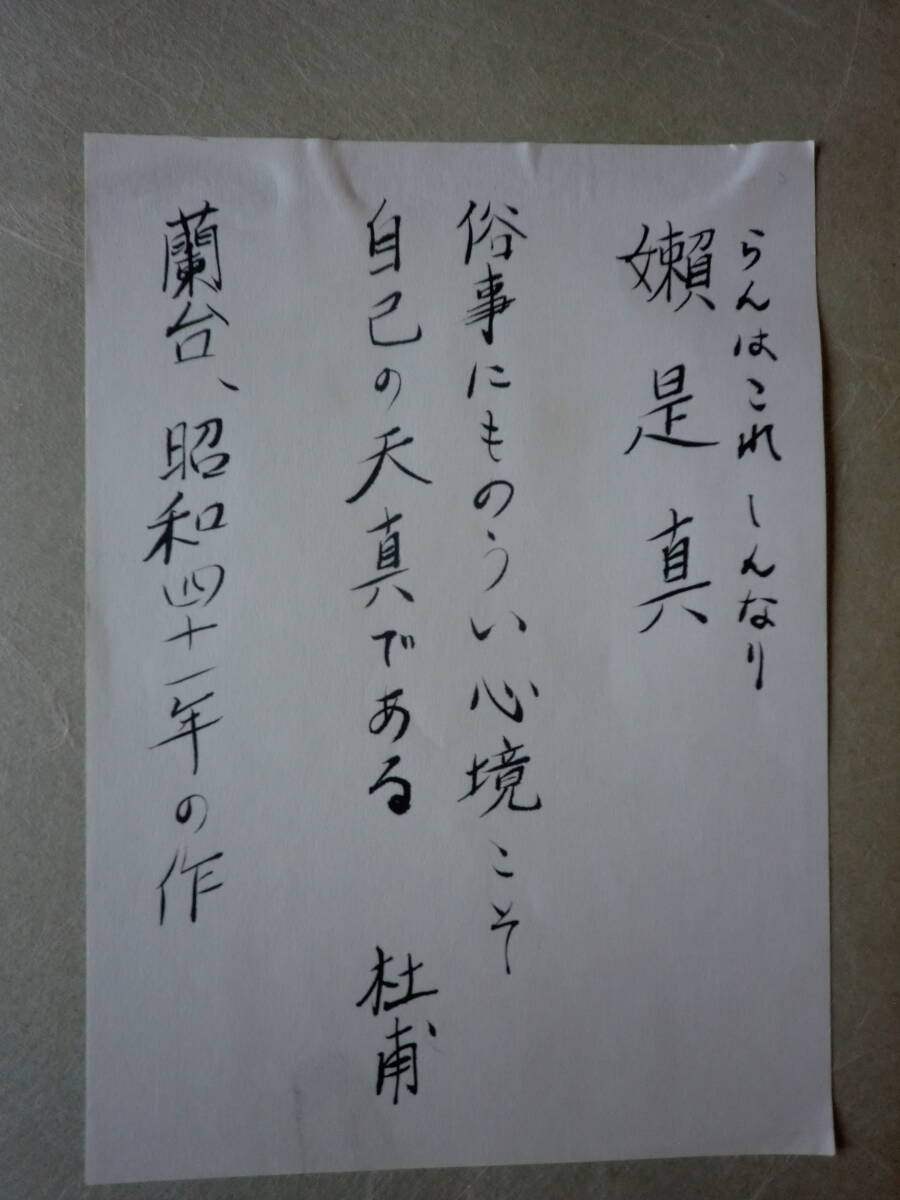 らんはこれしんなり
嬾是真
俗事にものうい心境こそ
自己の天真である 杜甫
蘭台、昭和四十一年の作